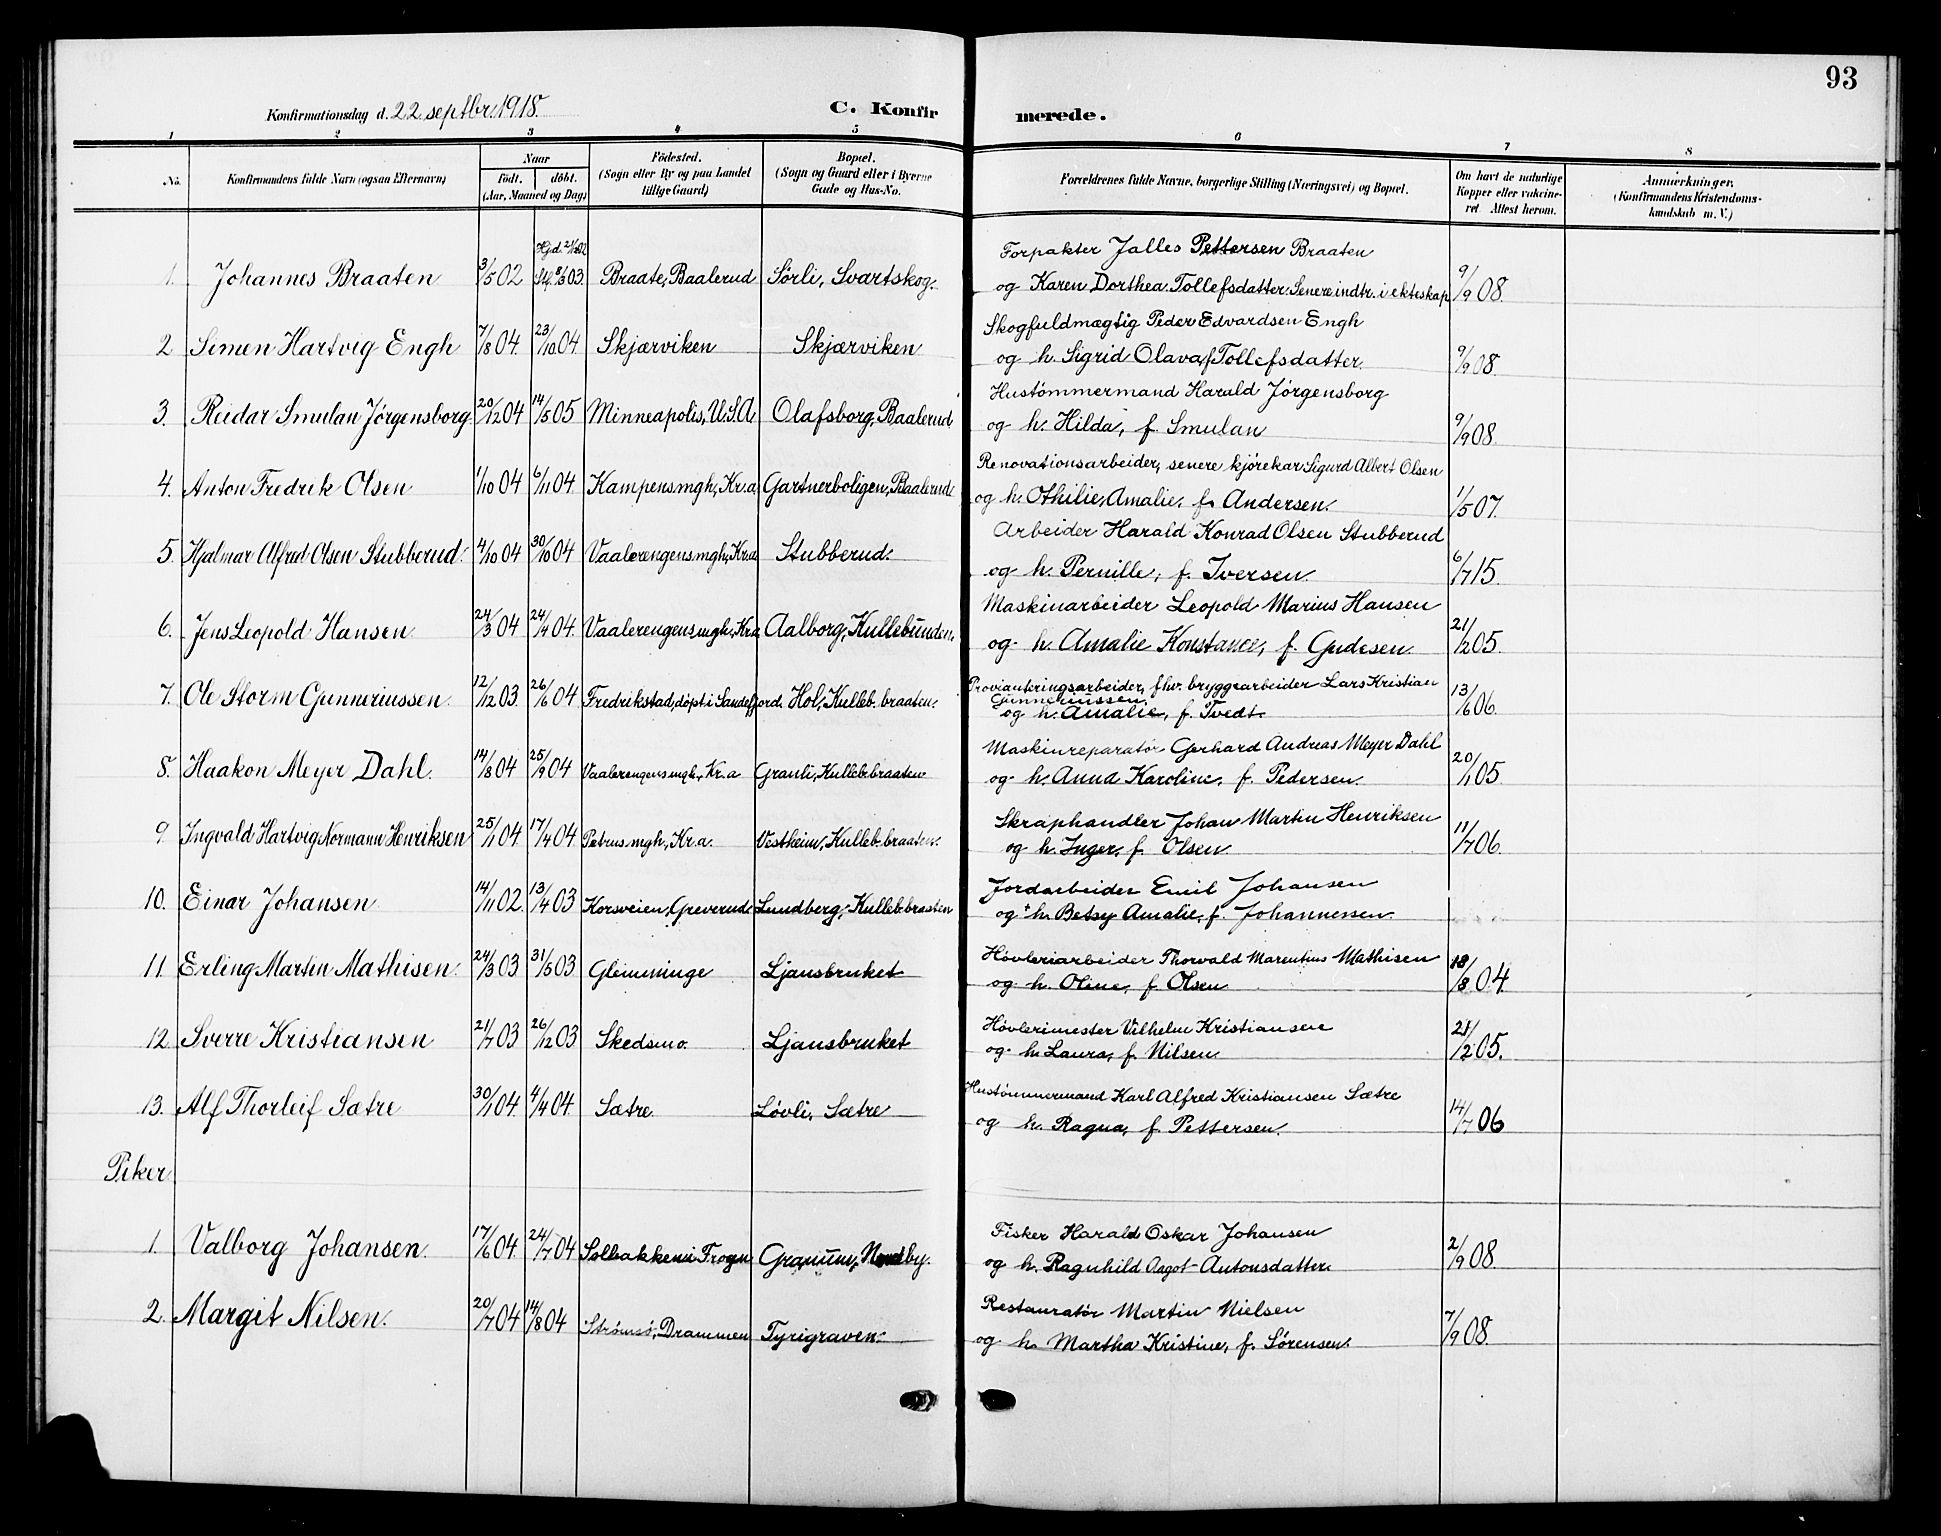 93
Konfirmationsdag d. 22 septbr. 1918. C. Konfirmerede.
1 2 3 4 5 6 7 8
No. Konfirmandens fulde Navn (ogsaa Efternavn) Naar født. døbt. (Aar, Maaned og Dag) Fødested. (Sogn eller By og paa Landet tillige Gaard) Bopæl. (Sogn og Gaard eller i Byerne Gade og Hus-No. Forældrenes fulde Navne, borgerlige Stilling (Næringsvei) og Bopæl. Om havt de naturlige Kopper eller vakcineret. Attest herom. Anmærkninger. (Konfirmandens Kristendomskundskab m. V.)
1. Johannes Braaten 3/5 02 Stf. 8/3 03. Braate, Baalerud Sørli, Svartskog. Forpakter Jalles Pettersen Braaten
og Karen Dorthea Tollefsdatter. Senere indtr. i ekteskap 9/9 08.
2 Simen Hartvig Engh 7/8 04. 23/10 04. Skjærviken Skjærviken Skogfuldmægtig Peder Edvardsen Engh
og h. Sigrid Olava f. Tollefsdatter. 9/9 08.
3. Reidar Smulan Jørgensborg 20/12 04 14/5 05 Minneapolis, U.S.A. Olafsborg, Baalerud Hustømmermand Harald Jørgensborg
og h. Hilda, f. Smulan 9/9 08.
4. Anton Fredrik Olsen 1/10 04 6/11 04 Kampens mgh, Kr.a. Gartnerboligen, Baalerud Renovationsarbeider, senere kjørekar Sigurd Albert Olsen
og h. Othilie Amalie, f. Andersen. 1/5 07.
5. Hjalmar Alfred Olsen Stubberud. 4/10 04 30/10 04 Vaalerengens mgh, Kr.a Stubberud. Arbeider Harald Konrad Olsen Stubberud
og h. Pernille, f. Iversen. 6/7 15.
6. Jens Leopold Hansen 24/3 04 24/4 04. Vaalerengens mgh, Kr.a. Aalborg, Kullebunden. Maskinarbeider Leopold Marius Hansen
og h. Amalie Konstance, f. Gudesen. 21/12 05.
7. Ole Storm Gunneriussen. 12/12 03. 26/6 04 Fredrikstad, døpt i Sandefjord. Hol, Kulleb.braaten. Provianteringsarbeider, fhv. bryggearbeider Lars Kristian
Gunneriussen
og h. Amalie, f. Tvedt. 13/6 06.
8. Haakon Meyer Dahl. 14/8 04 25/9 04 Vaalerengens mgh, Kr.a Granli, Kulleb.braaten Maskinreparatør Gerhard Andreas Meyer Dahl
og h. Anna Karoline, f. Pedersen. 20/1 05
9. Ingvald Hartvig Normann Henriksen 25/1 04. 17/4 04. Petrus mgh, Kr.a. Vestheim, Kulleb.braaten. Skraphandler Johan Martin Henriksen
og h. Inger, f. Olsen. 11/7 06.
10. Einar Johansen 14/11 02. 13/4 03 Korsveien, Greverud Lundberg, Kulleb.braaten Jordarbeider Emil Johansen
og + h. Betsy Amalie, f. Johannessen
11. Erling Martin Mathisen. 24/3 03 31/5 03 Glemminge Ljansbruket Høvleriarbeider Thorvald Marentius Mathisen
og h. Oline, f. Olsen 18/8 04.
12. Sverre Kristiansen 21/7 03 26/12 03 Skedsmo. Ljansbruket Høvlerimester Vilhelm Kristiansen
og h. Laura, f. Nilsen. 21/12 05.
13. Alf Thorleif Sætre 30/1 04. 4/4 04. Sætre. Løvli, Sætre Hustømmermand Karl Alfred Kristiansen Sætre
og h. Ragna, f. Pettersen. 14/7 06
Piker
1. Valborg Johansen. 17/6 04. 24/7 04 Solbakken i Frogn Granum, Nordby. Fisker Harald Oskar Johansen
og h. Ragnhild Aagot Antonsdatter 2/9 08.
2. Margit Nilsen. 20/7 04 14/8 04 Strømsø, Drammen Tyrigraven. Restauratør Martin Nielsen
og h. Martha Kristine, f. Sørensen. 7/9 08.